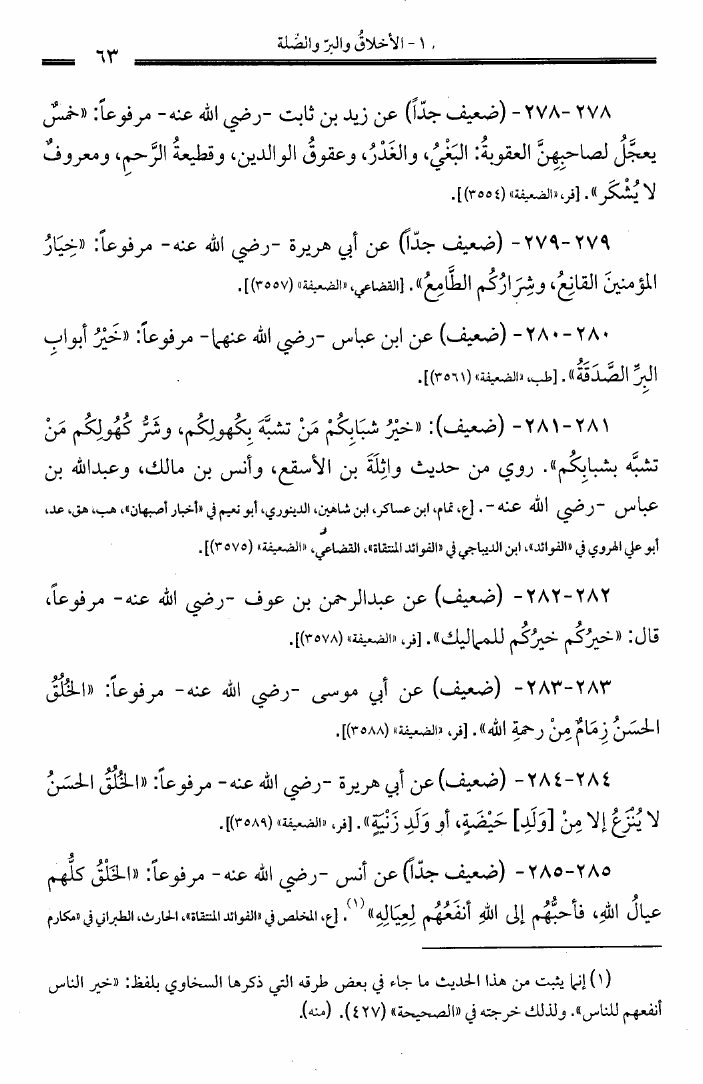 ١- الأخلاقُ والبرّ والصِّلة
٦٣
٢٧٨-٢٧٨- (ضعيف جدّاً) عن زيد بن ثابت -رضي الله عنه- مرفوعاً: «خمسٌ
يعجَّلُ لصاحبِهِنَّ العقوبةُ: البَغْيُ، والغَدْرُ، وعقوقُ الوالدين، وقطيعةُ الرَّحمِ، ومعروفٌ
لا يُشْكَر». [فر، «الضعيفة» (٣٥٥٤)].
٢٧٩-٢٧٩- (ضعيف جدّاً) عن أبي هريرة -رضي الله عنه- مرفوعاً: «خِيَارُ
المؤمنينَ القانِعُ، وشِرَارُكُم الطَّامِعُ». [القضاعي، «الضعيفة» (٣٥٥٧)].
٢٨٠-٢٨٠- (ضعيف) عن ابن عباس -رضي الله عنهما- مرفوعاً: «خَيْرُ أبوابِ
البِرِّ الصَّدَقَةُ». [طب، «الضعيفة» (٣٥٦١)].
٢٨١-٢٨١- (ضعيف): «خيْرُ شبَابِكُمْ مَنْ تشبَّهَ بِكُهولِكُم، وشَرُّ كُهُولِكُم مَنْ
تشبَّه بشبابِكُم». روي من حديث واثِلَةَ بن الأسقع، وأنس بن مالك، وعبدالله بن
عباس -رضي الله عنه-. [ع، تمام، ابن عساكر، ابن شاهين، الدينوري، أبو نعيم في «أخبار أصبهان»، هب، هق، عد،
أبو علي الهروي في «الفوائد»، ابن الديباجي في «الفوائد المنتقاة»، القضاعي، «الضعيفة» (٣٥٧٥)].
٢٨٢-٢٨٢- (ضعيف) عن عبدالرحمن بن عوف -رضي الله عنه- مرفوعاً،
قال: «خيرُكُم خيرُكُم للمماليك». [فر، «الضعيفة» (٣٥٧٨)].
٢٨٣-٢٨٣- (ضعيف) عن أبي موسى -رضي الله عنه- مرفوعاً: «الخُلُقُ
الحسَنُ زِمَامٌ مِنْ رحمةِ الله». [فر، «الضعيفة» (٣٥٨٨)].
٢٨٤-٢٨٤- (ضعيف) عن أبي هريرة -رضي الله عنه- مرفوعاً: «الخُلُقُ الحسَنُ
لا يُنْزَعُ إلا مِنْ [وَلَدِ] حَيْضَةٍ، أو وَلَدِ زَنْيَةٍ». [فر، «الضعيفة» (٣٥٨٩)].
٢٨٥-٢٨٥- (ضعيف جدّاً) عن أنس -رضي الله عنه- مرفوعاً: «الخَلْقُ كلُّهم
عيالُ اللهِ، فأحبُّهُم إلى اللهِ أنفَعُهُم لِعِيَالِهِ»(١). [ع، المخلص في «الفوائد المنتقاة»، الحارث، الطبراني في «مكارم
(١) إنما يثبت من هذا الحديث ما جاء في بعض طرقه التي ذكرها السخاوي بلفظ: «خير الناس
أنفعهم للناس». ولذلك خرجته في «الصحيحة» (٤٢٧). (منه).